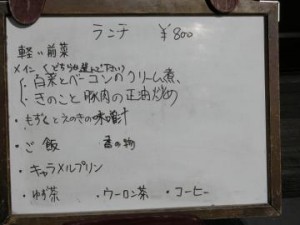 ランチ ¥800
軽い前菜
メイン(どちらか選んで下さい)
・白菜とベーコンのクリーム煮
・きのこと豚肉の正油炒め
・もずくとえのきの味噌汁
・ご飯 香の物
・キャラメルプリン
・ゆず茶 ・ウーロン茶 ・コーヒー